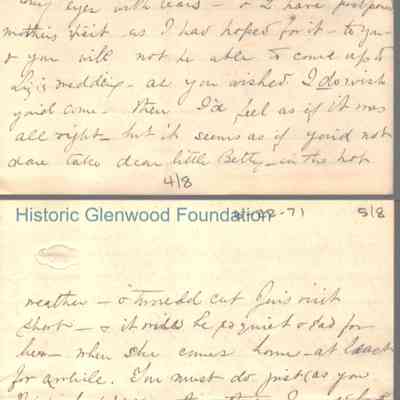 my eyes with tears - & I have postponed
mothers visit as I had hoped for it - to you
& you will not be able to come up to
Liz's wedding - as you wished. I do wish
you'd come - then I'd feel as if it was
all right - but it seems as if you'd not
dare take dear little Betty - in this hot
4/8
Historic Glenwood Foundation
-22-71 5/8
weather - & t'would cut Jim's visit
short - & it will be so quiet & sad for
her - when she comes home - at least
for awhile. You must do just (as you